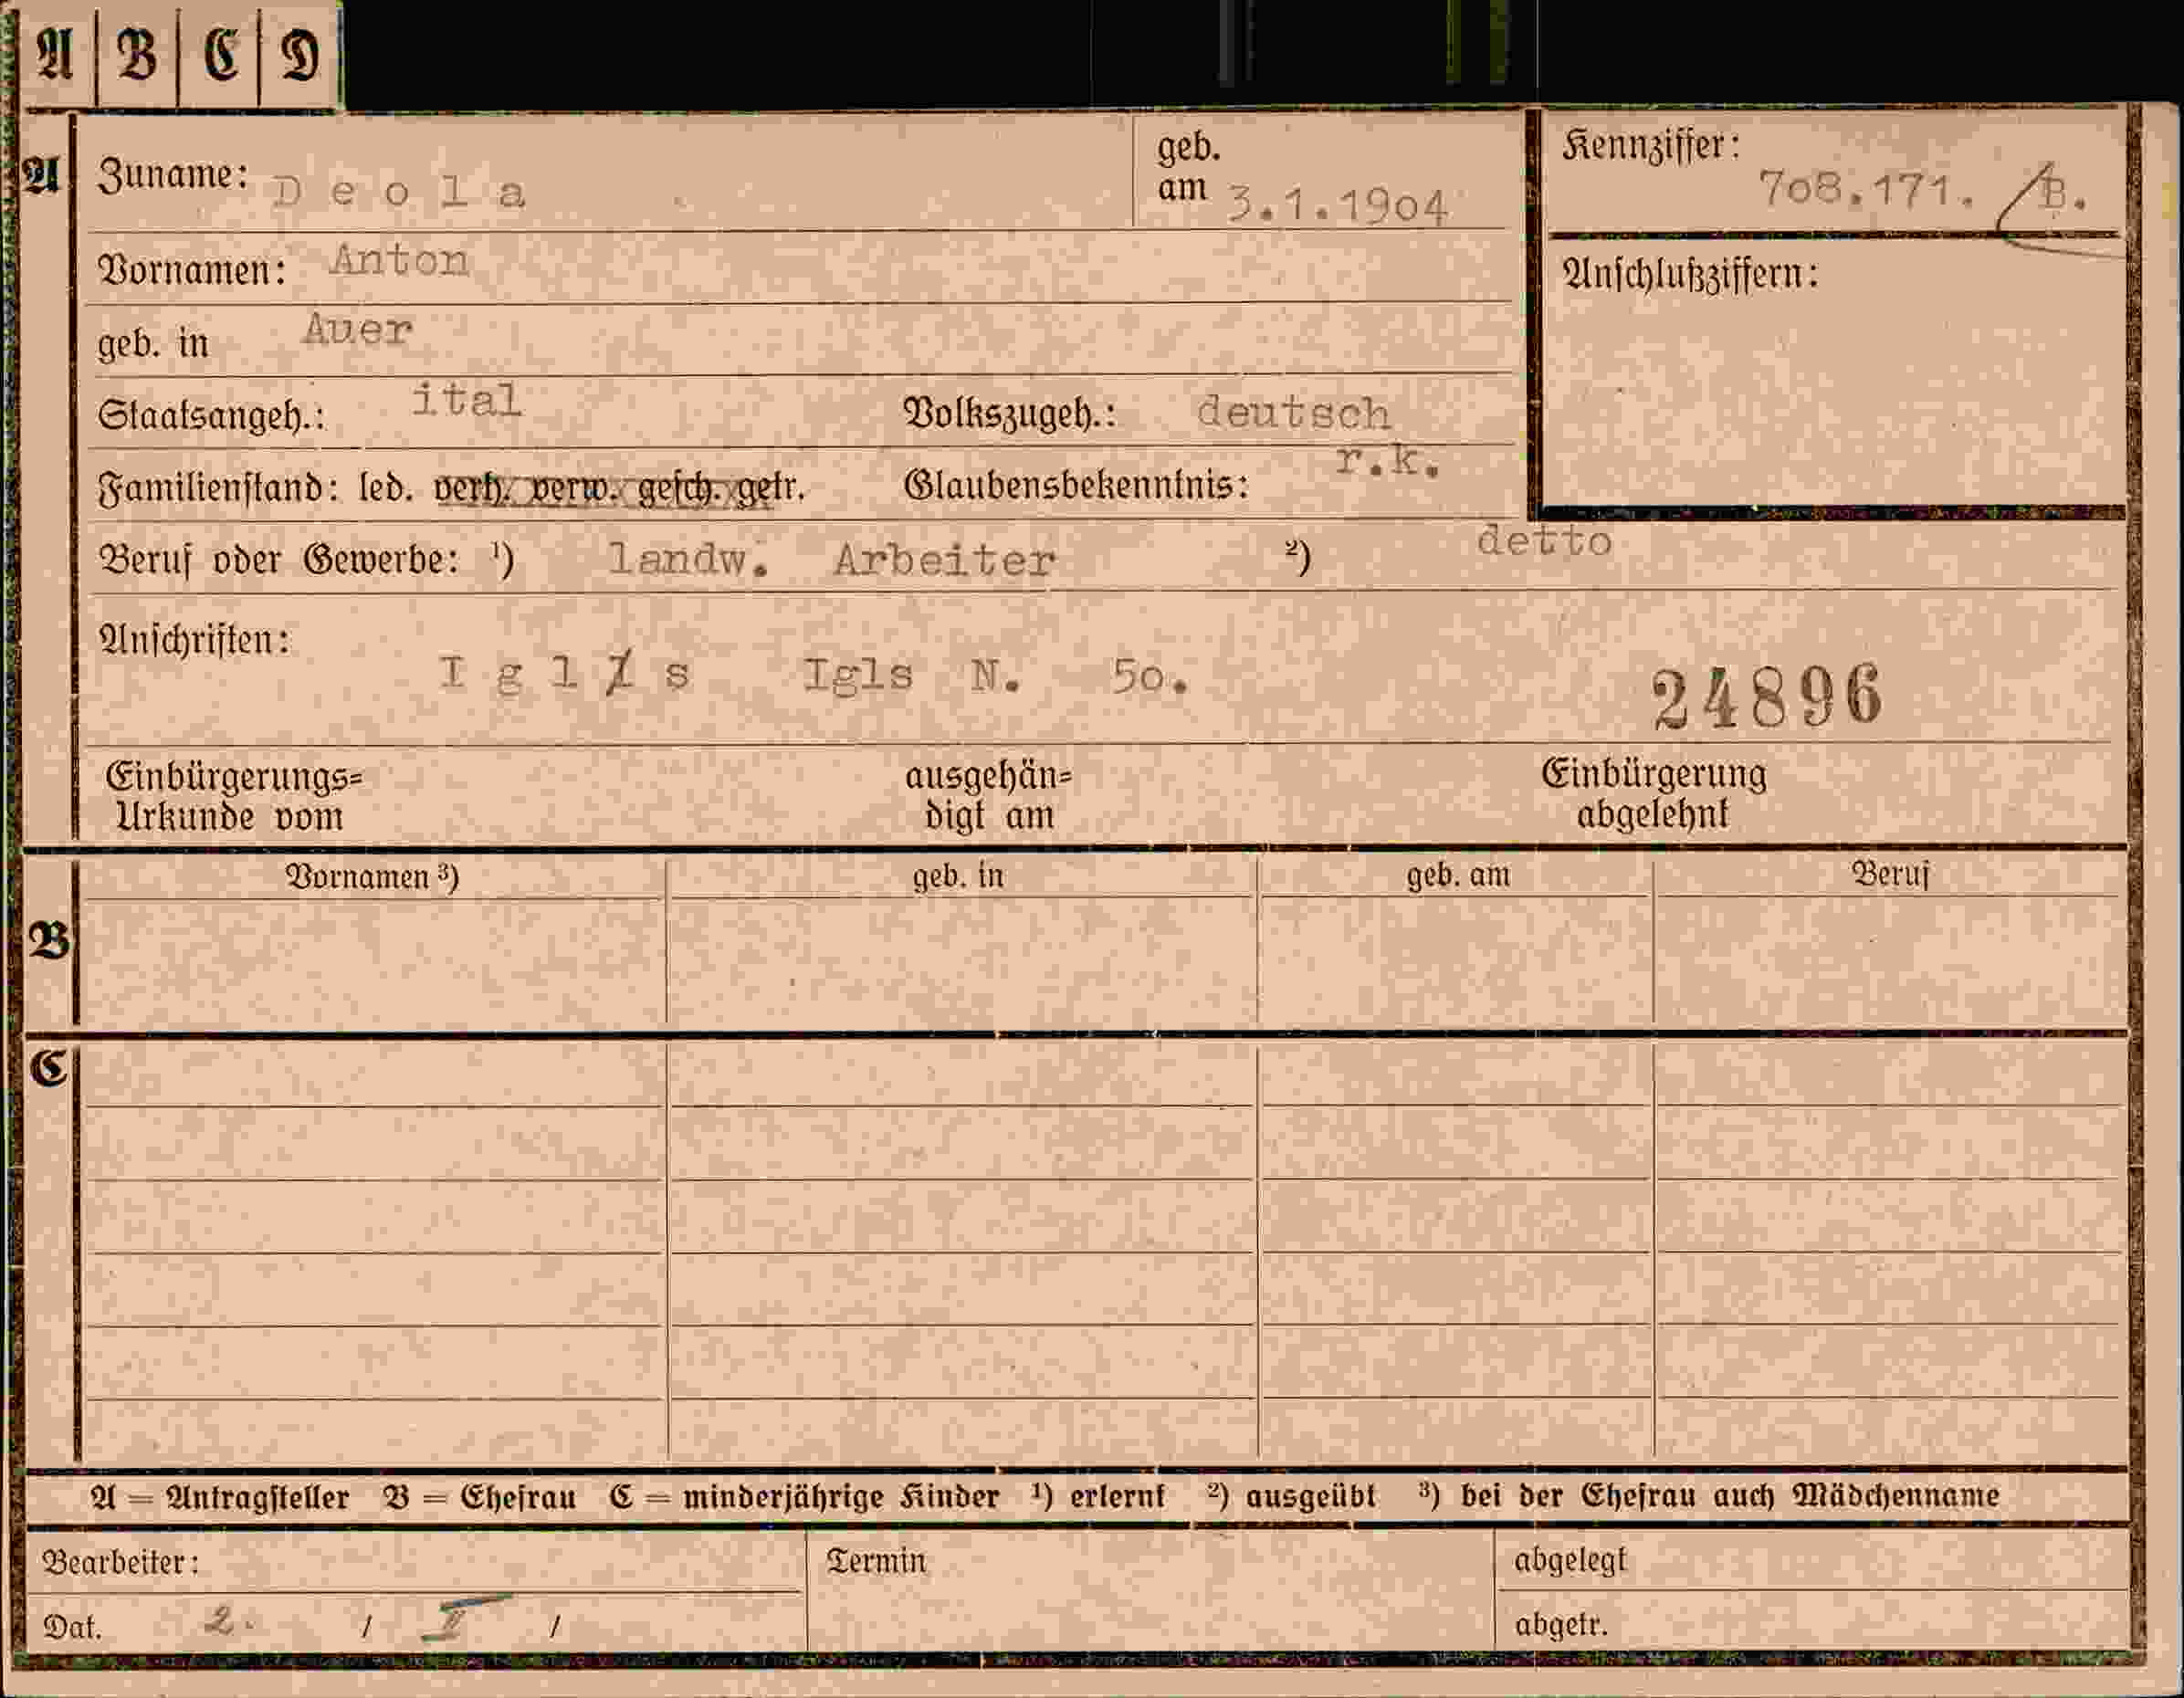 A B C D
A Zuname: Deola geb. am 3.1.1904 Kennziffer: 708.171. /B.
Vornamen: Anton
Anschlußziffern:
geb. in Auer
Staatsangeh.: ital Volkszugeh.: deutsch
Familienstand: led. verh. verw. gesch. getr. Glaubensbekenntnis: r.k.
Beruf oder Gewerbe: ¹) landw. Arbeiter ²) detto
Anschriften:
Igls Igls N. 50. 24896
Einbürgerungs= ausgehän= Einbürgerung
Urkunde vom digt am abgelehnt
Vornamen ³) geb. in geb. am Beruf
B
C
A = Antragsteller B = Ehefrau C = minderjährige Kinder ¹) erlernt ²) ausgeübt ³) bei der Ehefrau auch Mädchenname
Bearbeiter: Termin abgelegt
Dat. 2. / II / abgetr.